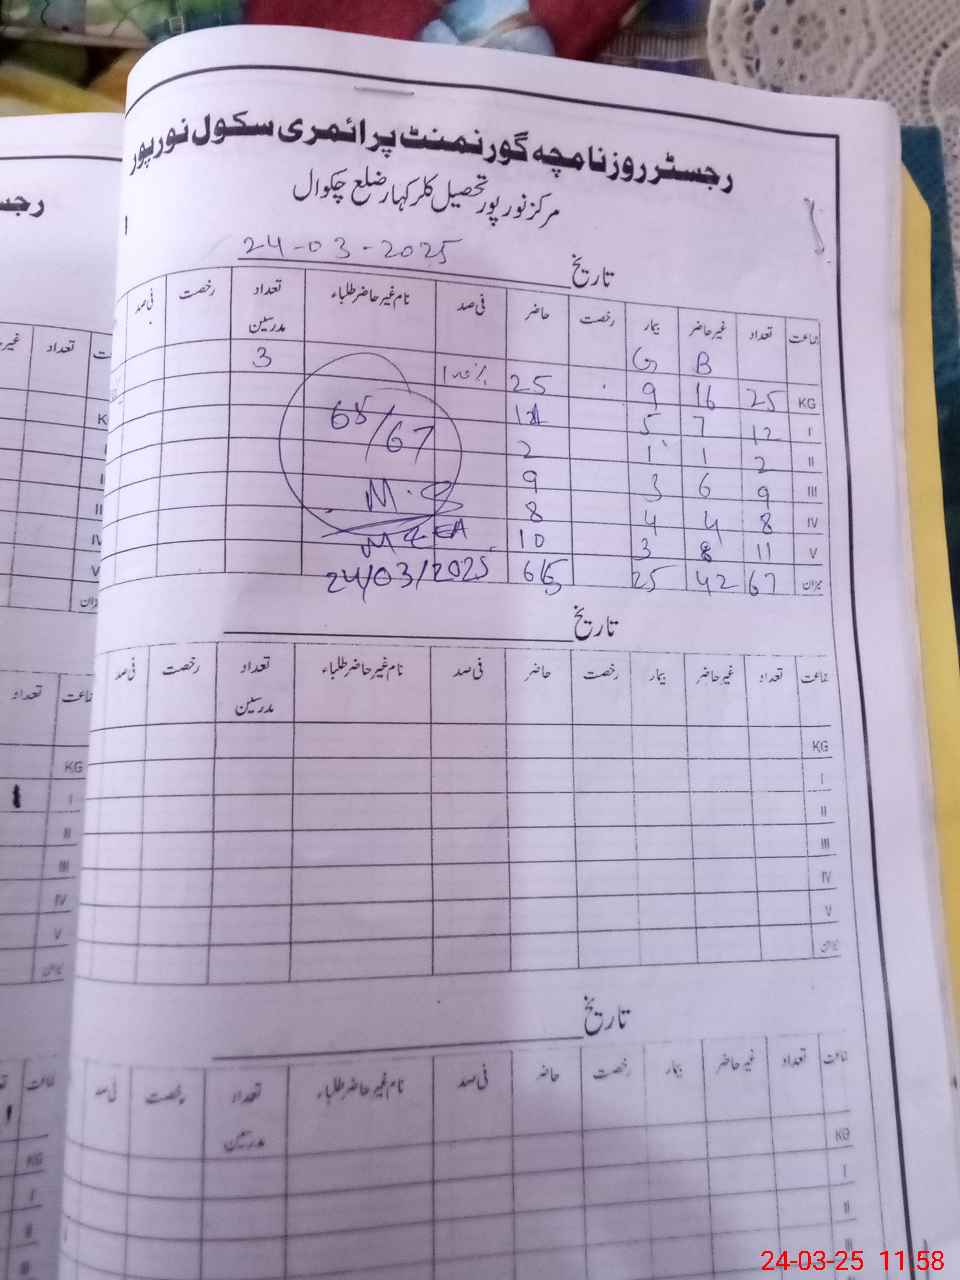 رجسٹر روزنامچہ گورنمنٹ پرائمری سکول نورپور
مرکز نور پور تحصیل کلرکہار ضلع چکوال
تاریخ 24-03-2025
جماعت تعداد غیر حاضر بیمار رخصت حاضر فی صد نام غیر حاضر طلباء تعداد مدرسین رخصت فی صد
B G 3
KG 25 16 9 25
I 12 7 5
II 2 1 1 2
III 9 6 3 9
IV 8 4 4 8
V 11 8 3 10
میزان 67 42 25 65
65/67
24/03/2025
تاریخ
جماعت تعداد غیر حاضر بیمار رخصت حاضر فی صد نام غیر حاضر طلباء تعداد مدرسین رخصت فی صد
KG
I
II
III
IV
V
میزان
تاریخ
جماعت تعداد غیر حاضر بیمار رخصت حاضر فی صد نام غیر حاضر طلباء تعداد مدرسین رخصت فی صد
KG
I
II
III
24-03-25 11:58